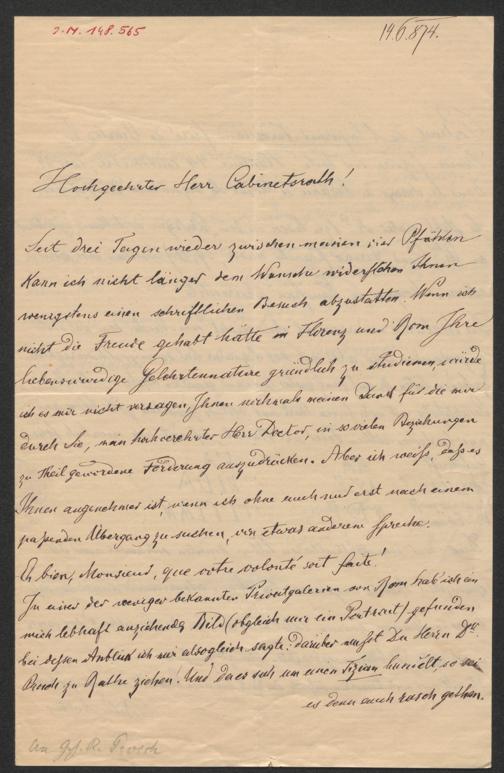 I.N. 148.565
14.6.874.
Hochgeehrter Herr Cabinetsrath!
Seit drei Tagen wieder zwischen meinen vier Pfählen
kann ich nicht länger dem Wunsche widerstehen Ihnen
wenigstens einen schriftlichen Besuch abzustatten. Wenn ich
nicht die Freude gehabt hätte in Florenz und Rom Ihre
liebenswürdige Gelehrtennatur gründlich zu studieren, würde
ich es mir nicht versagen, Ihnen nochmals meinen Dank für die mir
durch Sie, mein hochverehrter Herr Doctor, in so vielen Beziehungen
zu Theil gewordene Förderung auszudrücken. Aber ich weiß, daß es
Ihnen angenehmer ist, wenn ich ohne auch nur erst nach einem
paßenden Übergang zu suchen, von etwas anderem spreche.
Eh bien, Monsieur, que votre volonté soit faite!
In einer der weniger bekannten Privatgalerien von Rom hab' ich ein
mich lebhaft anziehendes Bild (obgleich nur ein Portrait) gefunden
bei dessen Anblick ich mir alsogleich sagte: darüber mußt Du Herrn Dr.
zu Rathe ziehen! Und da es sich um einen Tizian handelt, so sei
es denn auch rasch gethan.